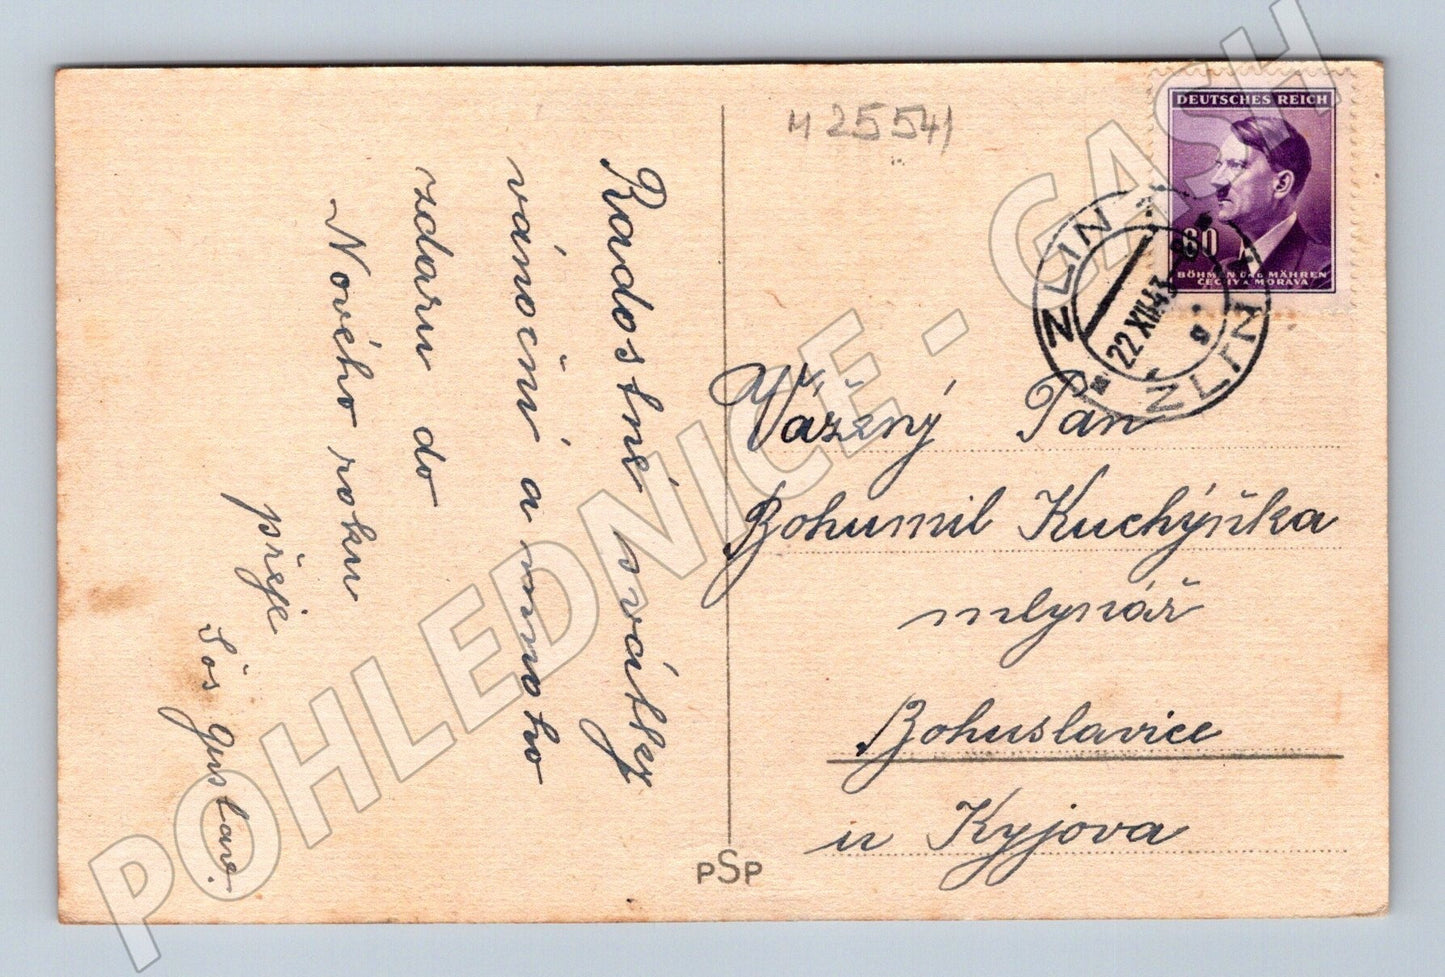 Radostné svátky
vánoční a mnoho
zdaru do
Nového roku
přeje
Šös Gustav.
M 25541
DEUTSCHES REICH
60
BÖHMEN UND MÄHREN
ČECHY A MORAVA
ZLIN
22 XII 43
ZLÍN
Vážený Pán
Bohumil Kuchyňka
mlynář
Bohuslavice
u Kyjova
PSP
POHLEDNICE - GASH